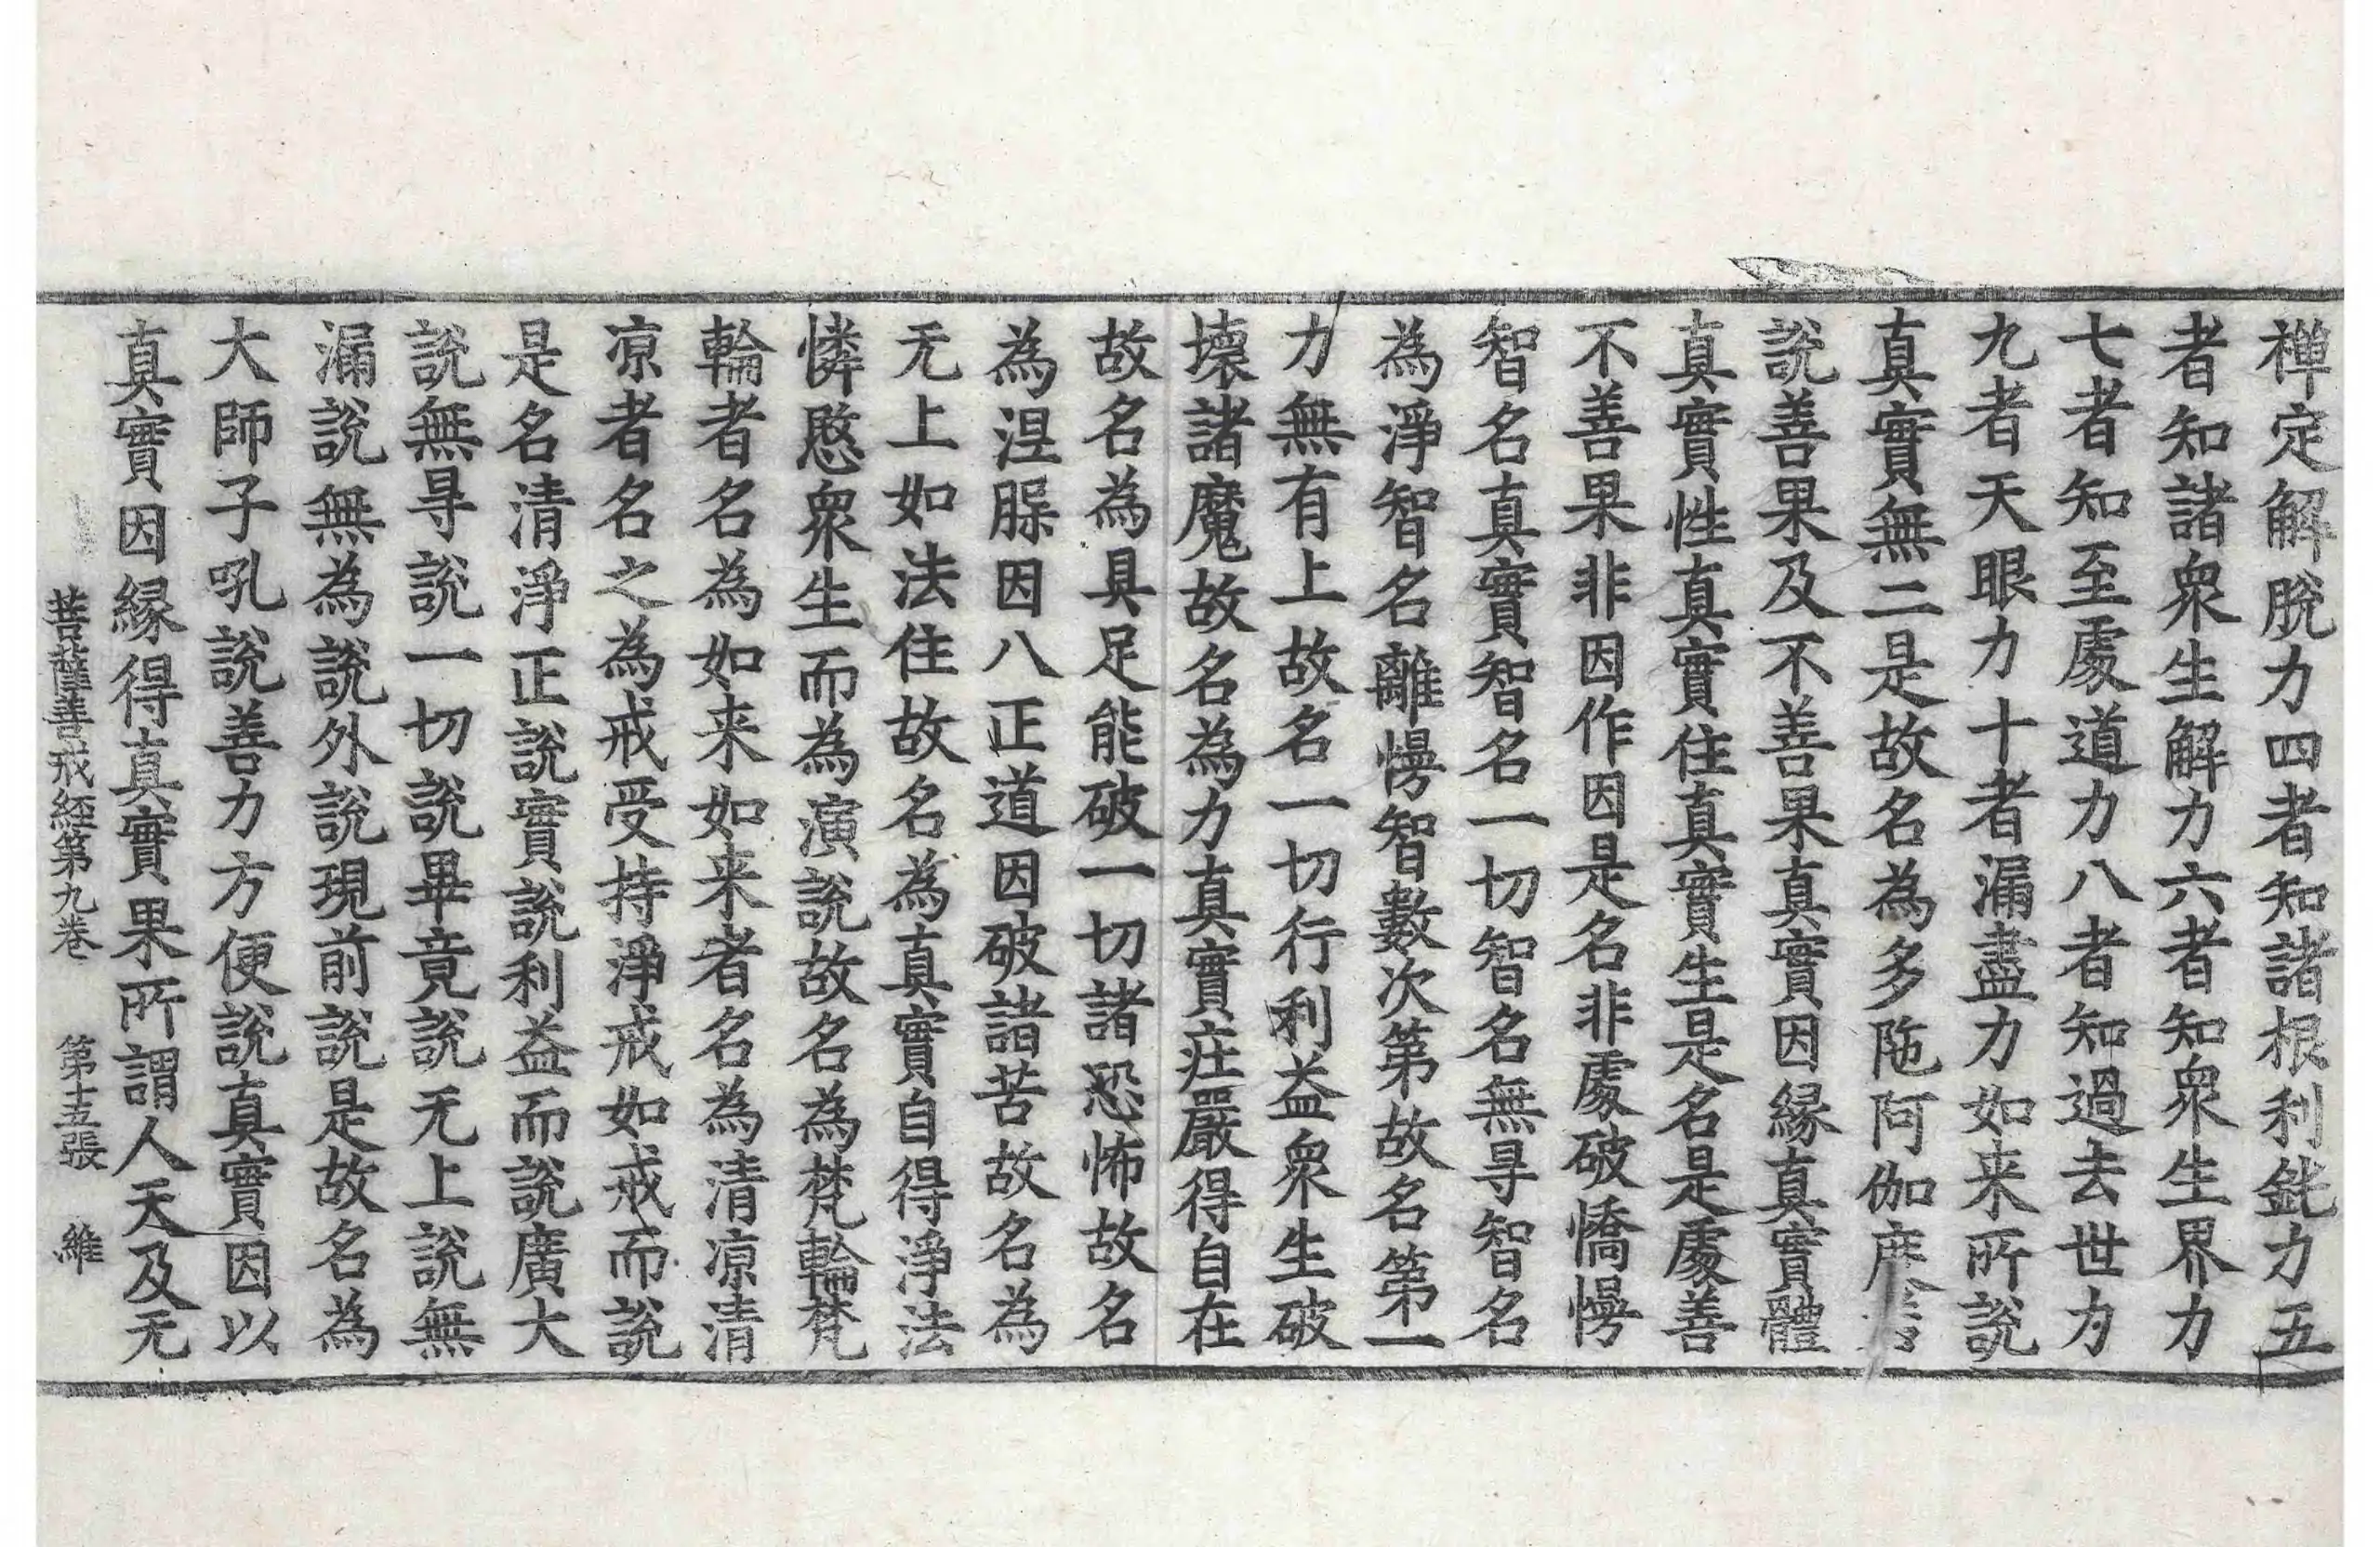 禅定解脫力四者知諸根利鈍力五
者知諸衆生解力六者知衆生界力
七者知至處道力八者知過去世力
九者天眼力十者漏盡力如来所說
真實無二是故名為多陁阿伽度
說善果及不善果真實因緣真實體
真實性真實住真實生是名是處善
不善果非因作因是名非處破憍慢
智名真實智名一切智名無㝵智名
為淨智名離慢智數次第故名第一
力無有上故名一切行利益衆生破
壞諸魔故名為力真實莊嚴得自在
故名為具足能破一切諸恐怖故名
為涅槃因八正道因破諸苦故名為
无上如法住故名為真實自得淨法
憐愍衆生而為演說故名為梵輪梵
輪者名為如来如来者名為清凉清
凉者名之為戒受持淨戒如戒而說
是名清淨正說實說利益而說廣大
說無㝵說一切說畢竟說无上說無
漏說無為說外說現前說是故名為
大師子吼說善力方便說真實因以
真實因緣得真實果所謂人天及无
菩薩善戒経第九卷　第十五張　維